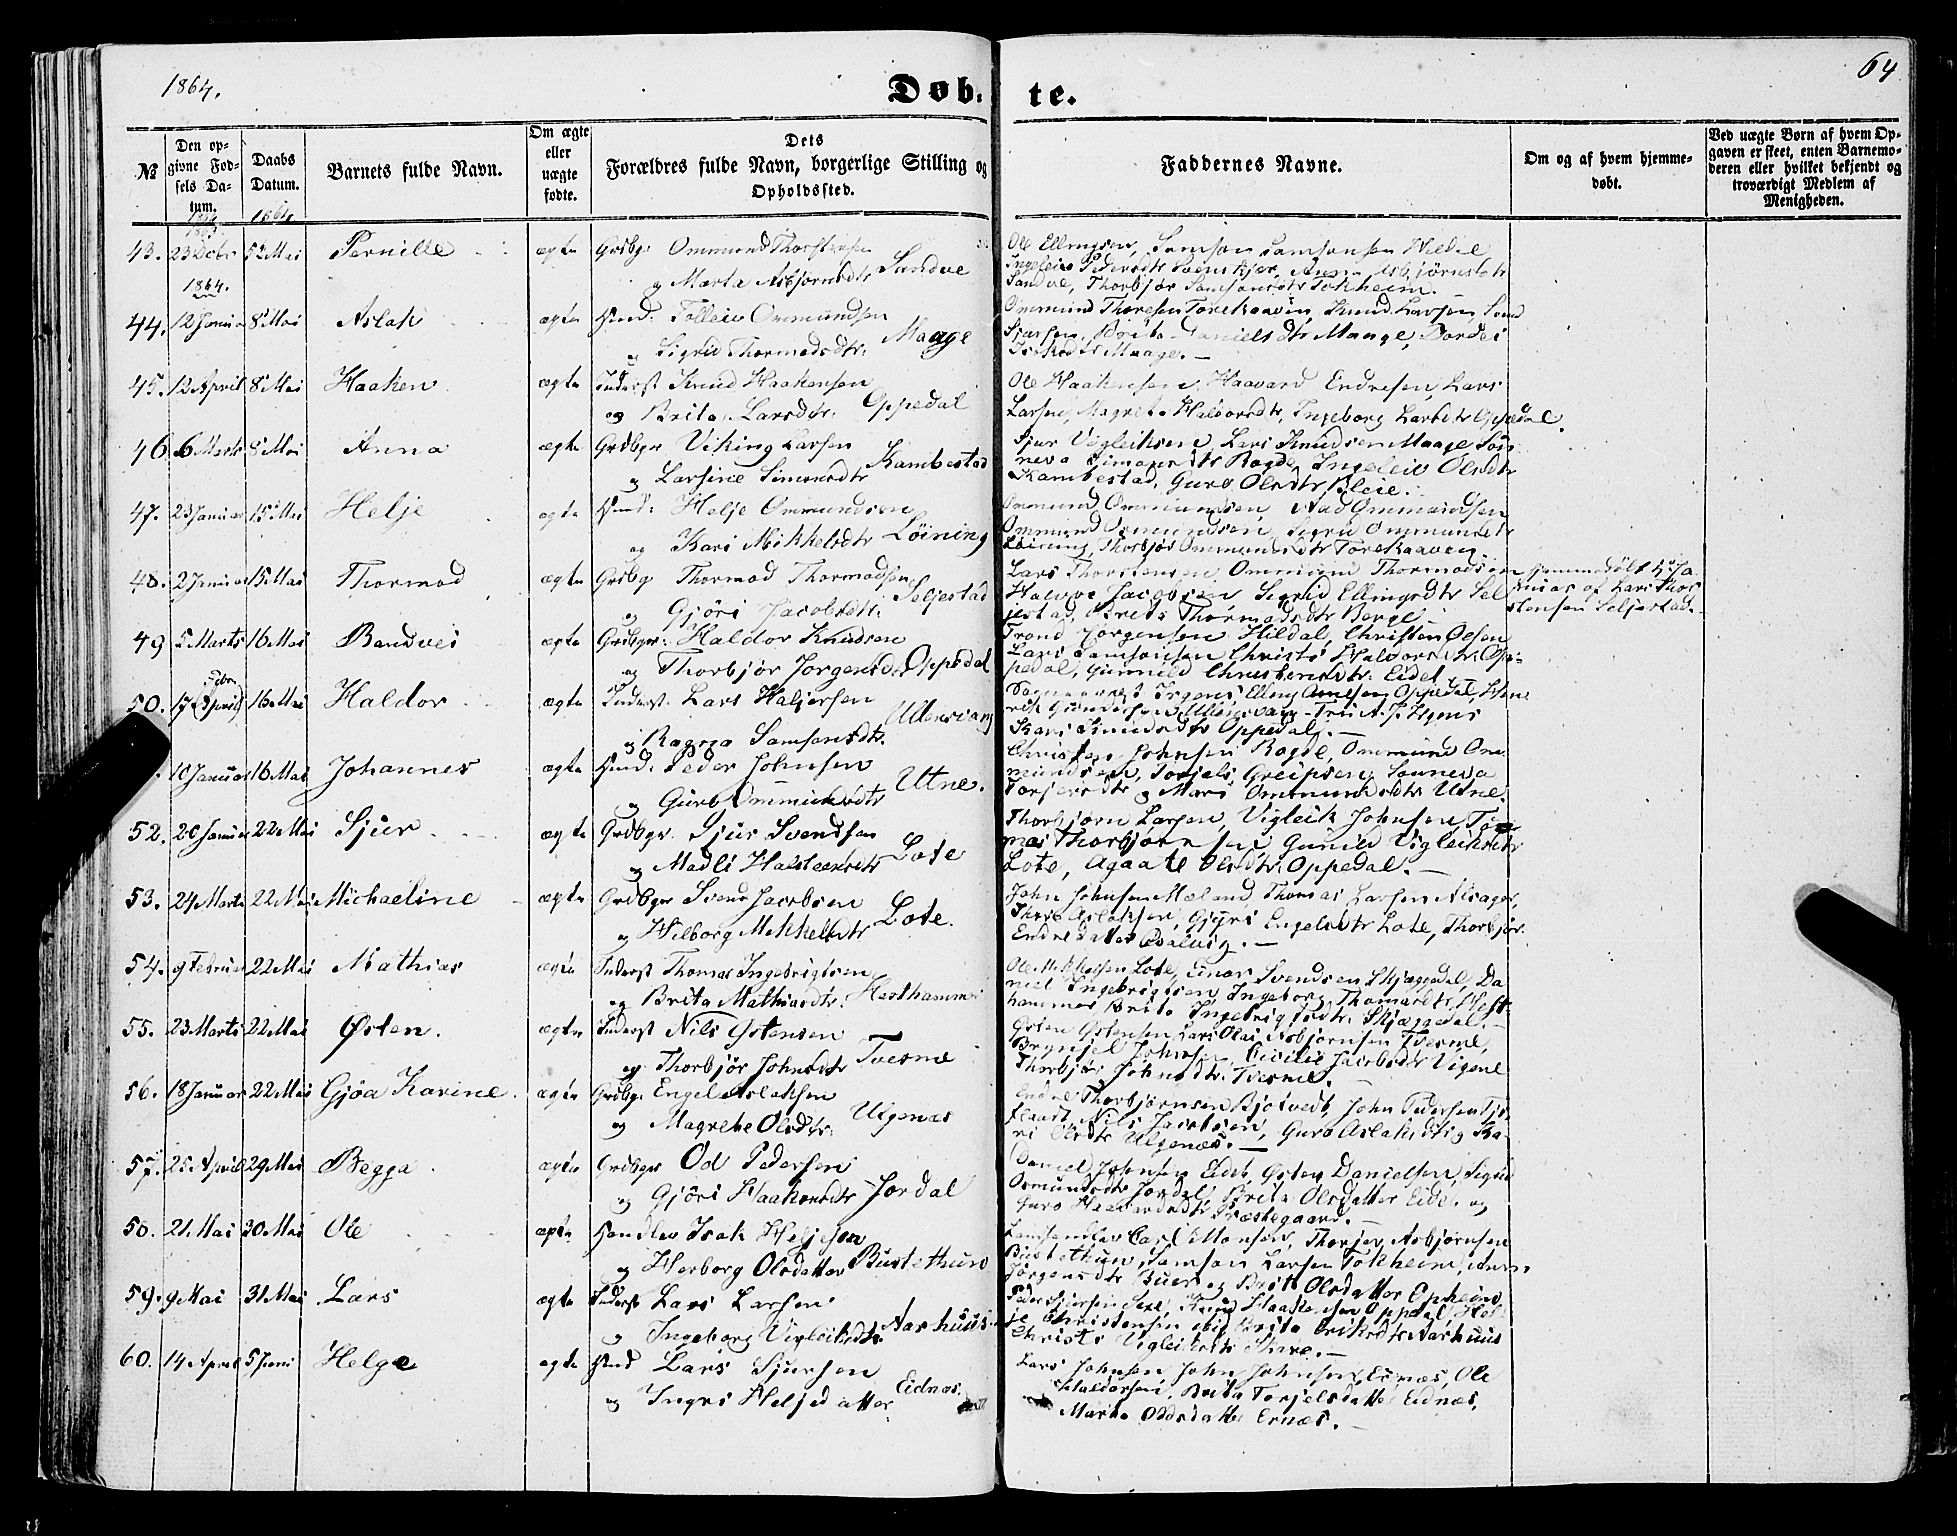 1864.
Døb-
te.
64
№
Den op-
givne Fød-
sels Da-
tum.
Daabs
Datum.
Barnets fulde Navn.
Om ægte
eller
uægte
fødte.
Dets
Forældres fulde Navn, borgerlige Stilling og
Opholdssted.
Faddernes Navne.
Om og af hvem hjemme-
døbt.
Ved uægte Børn af hvem Op-
gaven er skeet, enten Barnemo-
deren eller hvilket bekjendt og
troværdigt Medlem af
Menigheden.
1863. 1864.
43. 23 Dcbr 5 Mai Pernille ægte Grdbgr Ommund Thorstensen
og Marta Asbjørnsdtr Sandve
Ole Ellingsen, Samson Samsonsen Hildal
Ingeleiv Pedersdtr, Anna Asbjørnsdtr
Sandve, Thorbjør Samsonsdtr Tokheim.
1864.
44. 12 Januar 8 Mai Aslak ægte Huusd: Tolleiv Ommundsen
og Sigrid Thormodsdtr: Maage
Ommund Thoresen Torekaaven, Knud Larsen
Sjursen, Brita Danielsdtr Maage, Bordei
Isaksdtr Maage.—
45. 12 April 8 Mai Haaken ægte Inderst Knud Haakensen
og Brita Larsdtr: Oppedal
Ole Haakensen, Haavard Endresen, Lars
Larsen, Magreta Haldorsdtr, Ingeborg Larsdtr Oppedal.
46. 6 Marts 8 Mai Anna ægte Grdbgr Viking Larsen
og Larsine Simonsdtr Kambestad
Sjur Vigleiksen, Lars Knudsen Maage, Søn-
neva Simonsdtr Ragde, Ingeleiv Olsdtr
Kambestad, Guro Olsdtr Bleie.
47. 23 Januar 15 Mai Helje ægte Huusd: Helje Ommundsen
og Kari Mikkelsdtr Løining
Ommund Ommundsen, Aad Ommundsen
Ommund Ommundsen, Sigrid Ommundsdtr
Løining, Thorbjør Ommundsdtr Torekaaven.
48. 2 Januar 15 Mai Thormod ægte Grdbgr Thormod Thormodsen
og Gjøri Jacobsdtr: Seljestad
Lars Thorstensen, Ommund Thormodsen
Halvor Jacobsen, Sigrid Ellingsdtr Sel-
jestad, Brita Thormodsdtr Berge.—
hjemmedøbt 5 Ja-
nuar af Lars Thor-
stensen Seljestad.
49. 5 Marts 16 Mai Bendvei ægte Grdbgr: Haldor Knudsen
og Thorbjør Jørgensdtr Oppedal
Trond Jørgensen Hildal, Christen Olsen
Lars Samsonsen, Christi Haldorsdtr Op-
pedal, Gunnild Christensdtr: Eidet.
50. 17 Febr. (April) 16 Mai Haldor ægte Inderst: Lars Haljersen
og Ragna Samsonsdtr. Ullensvang
Sognepræst Irgens, Elling Arnesen Oppedal, Hen-
rik Ullensvang, Fru
Kari Knudsdtr Oppedal.—
10 Januar 16 Mai Johannes ægte Huusd: Peder Johnsen
og Guro Ommundsdtr Utne.
Christen Johnsen Ragde, Ommund Om-
mundsen, Torjels Greipsen, Sønneva
Torjersdtr og Mari Ommundsdtr Utne.
52. 20 Januar 22 Mai Sjur ægte Grdbgr. Sjur Svendsen
og Madli Halsteensdtr Lote
Thorbjørn Larsen, Vigleik Johnsen, To-
mas Thorbjørnsen, Gunild Vigleiksdtr
Lote, Agaate Olsdtr: Oppedal.—
53. 24 Marts 22 Mai Michaeline ægte Grdbgr Svend Jacobsen
og Wilborg Mikkelsdtr Lote.
John Johnsen Mæland, Thomas Larsen Alsager,
Thore Aslaksen, Gjyri Engelsdtr Lote, Thorbjør
Endresdatter.—
54. 9 Februar 22 Mai Mathias ægte Inderst Thomas Ingebrigtsen
og Brita Mathiasdtr: Hesthammer
Ole Mikkelsen Lote, Einar Svendsen Skjæggedal, Da-
niel Ingebrigtsen, Ingeborg Thomasdtr Hest-
hammer, Brita Ingebrigtsdtr: Skjæggedal.—
55. 23 Marts 22 Mai Østen. ægte Inderst Nils Østensen
og Thorbjør Johnsdtr Tvesme
Østen Østensen, Lars Olai Asbjørnsen Tvesme,
Brynjel Johnsen, Cicilie Jacobsdtr Vigene
Thorbjør Johnsdtr: Tvesme.—
56. 18 Januar 22 Mai Gjøa Karine ægte Grdbgr: Engel Aslaksen
og Magrete Olsdtr: Ulgenæs
Endre Thorbjørnsen Bjotvedt, John Pedersen Tjo-
flaadt, Nils Jacobsen, Guro Aslaksdtr og Ka-
ri Olsdtr Ulgenæs.—
57. 25 April 29 Mai Begga ægte Grdbgr Od Pedersen
og Gjøri Haakensdtr Jordal
Daniel Johnsen Eide, Østen Danielsen, Sigrid
Osmundsdtr Jordal, Brita Olsdatter Eide, og
Guro Haavardsdtr Præstegaard.—
58. 21 Mai 30 Mai Ole ægte Handler Isak Heljesen
og Herborg Olsdatter Bustethun
Landhandler Carl Monsen, Thorjer Asbjørnsen
Bustethun, Samson Larsen Tokheim,
Jørgensdtr Buer og Brita Olsdatter Opheim
59. 9 Mai 31 Mai Lars ægte Inderst Lars Larsen
og Ingeborg Vigleiksdtr Aarhuus
Peder Sjursen Sexe, Knud Haakensen Oppedal, Hel-
je Christensen ibid. Brita Eriksdtr Aarhuus
Christi Vigleiksdtr Skare.—
60. 14 April 5 Juni Helge ægte Huusd Lars Sjursen
og Ingri Heljedatter Eidnæs.
Lars Johnsen, John Johnsen, Ernæs, Ole
Haldorsen, Brita Torjelsdatter Eidnæs,
Marta Oddsdatter Ernæs.—